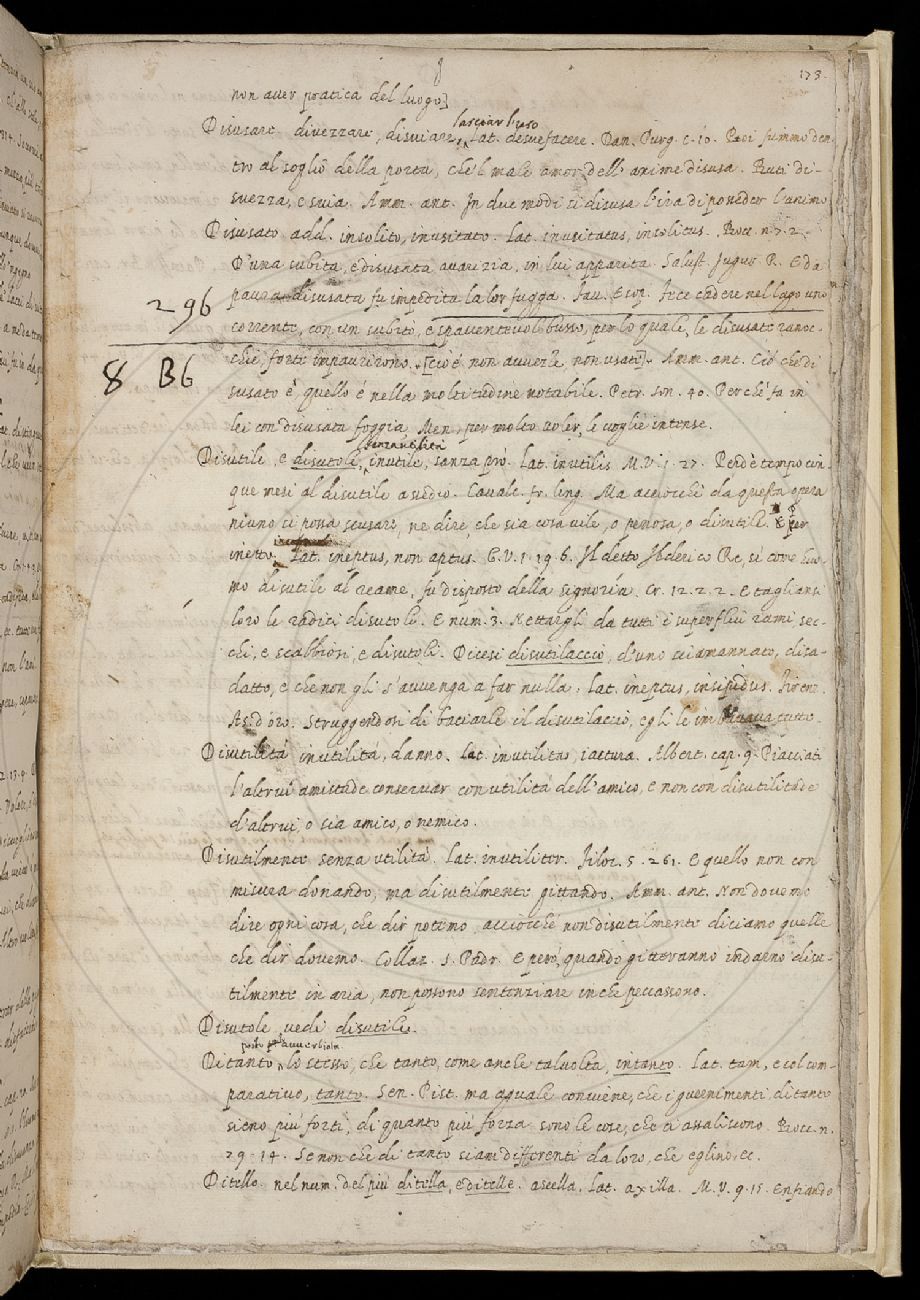 173.
non aver pratica del luogo]
lasciar l'uso
Disusare. divezzare, disviare, Lat. desuefacere. Dan. Purg. c. 10. Poci fummo den-
tro al soglio della porta, che 'l male amor dell' anime disusa. Buti di-
svezza, e svia. Amm. ant. In due modi si disusa l'ira di posseder l'animo
Disusato add. insolito, inusitato. Lat. inusitatus, insolitus. Bocc. n. 7. 2.
D'una subita, e disusata avarizia, in lui apparita. Salust. Jugur. R. E da
paura disusata fu impedita la lor fugga. Fav. Esop. Fece cadere nel lago uno
296
corrente, con un subito, e spaventevol busso, per lo quale, le disusate ranoc-
chie forte impaurirono. [cioè non avvezze, non usate]. Amm. ant. Ciò che di
8 B6
susato è, quello è nella moltitudine notabile. Petr. son. 40. Perchè fa in
lei con disusata foggia Men, per molto voler, le voglie intense.
senza utilità
Disutile, e disutole, inutile, sanza prò. Lat. inutilis M.V. 1. 27. Perdè tempo cin-
que mesi al disutile assedio. Cavalc. fr. ling. Ma acciocchè da questa opera
niuno si possa scusare, ne dire, che sia cosa vile, o penosa, o disutile. E per
inetto. Lat. ineptus, non aptus. G.V. 1. 19. 6. Il detto Ilderico Re, sì come huo-
mo disutile al reame, fu disposto della signoria. Cr. 12. 2. 2. E tagliansi
loro le radici disutoli. E num. 3. Rettargli da tutti i superflui rami, sec-
chi, e scabbiosi, e disutoli. Dicesi disutilaccio, d'uno sciamannato, disa-
datto, e che non gli s'avvenga a far nulla. Lat. ineptus, insipidus. Firenz.
As. d'oro. Struggendosi di baciarle il disutilaccio, egli le imbavava tutto.
Disutilità inutilità, danno. Lat. inutilitas, iactura. Albert. cap. 9. Piacciati
l'altrui amistade conservar con utilità dell' amico, e non con disutilitade
d'altrui, o sia amico, o nemico.
Disutilmente senza utilità. Lat. inutiliter. Filoc. 5. 261. E quello non con
misura donando, ma disutilmente gittando. Amm. ant. Non dovemo
dire ogni cosa, che dir potemo, acciocchè non disutilmente diciamo quelle
che dir dovemo. Collaz. S. Padr. E però, quando gitteranno indarno disu-
tilmente in aria, non possono sentenziare in che peccassono.
Disutole vedi disutile.
posto avverbialm
Ditanto lo stesso, che tanto, come anche talvolta, intanto. Lat. tam, e col com-
parativo, tanto. Sen. Pist. ma aguale conviene, che i guernimenti ditanto
sieno più forti, di quanto più forza sono le cose, che ti assaliscono. Bocc. n.
29. 14. Se non che di tanto siam differenti da loro, che eglino, ec.
Ditello. nel num. del più ditella, e ditelle. ascella. Lat. axilla. M.V. 9. 15. Enfiando